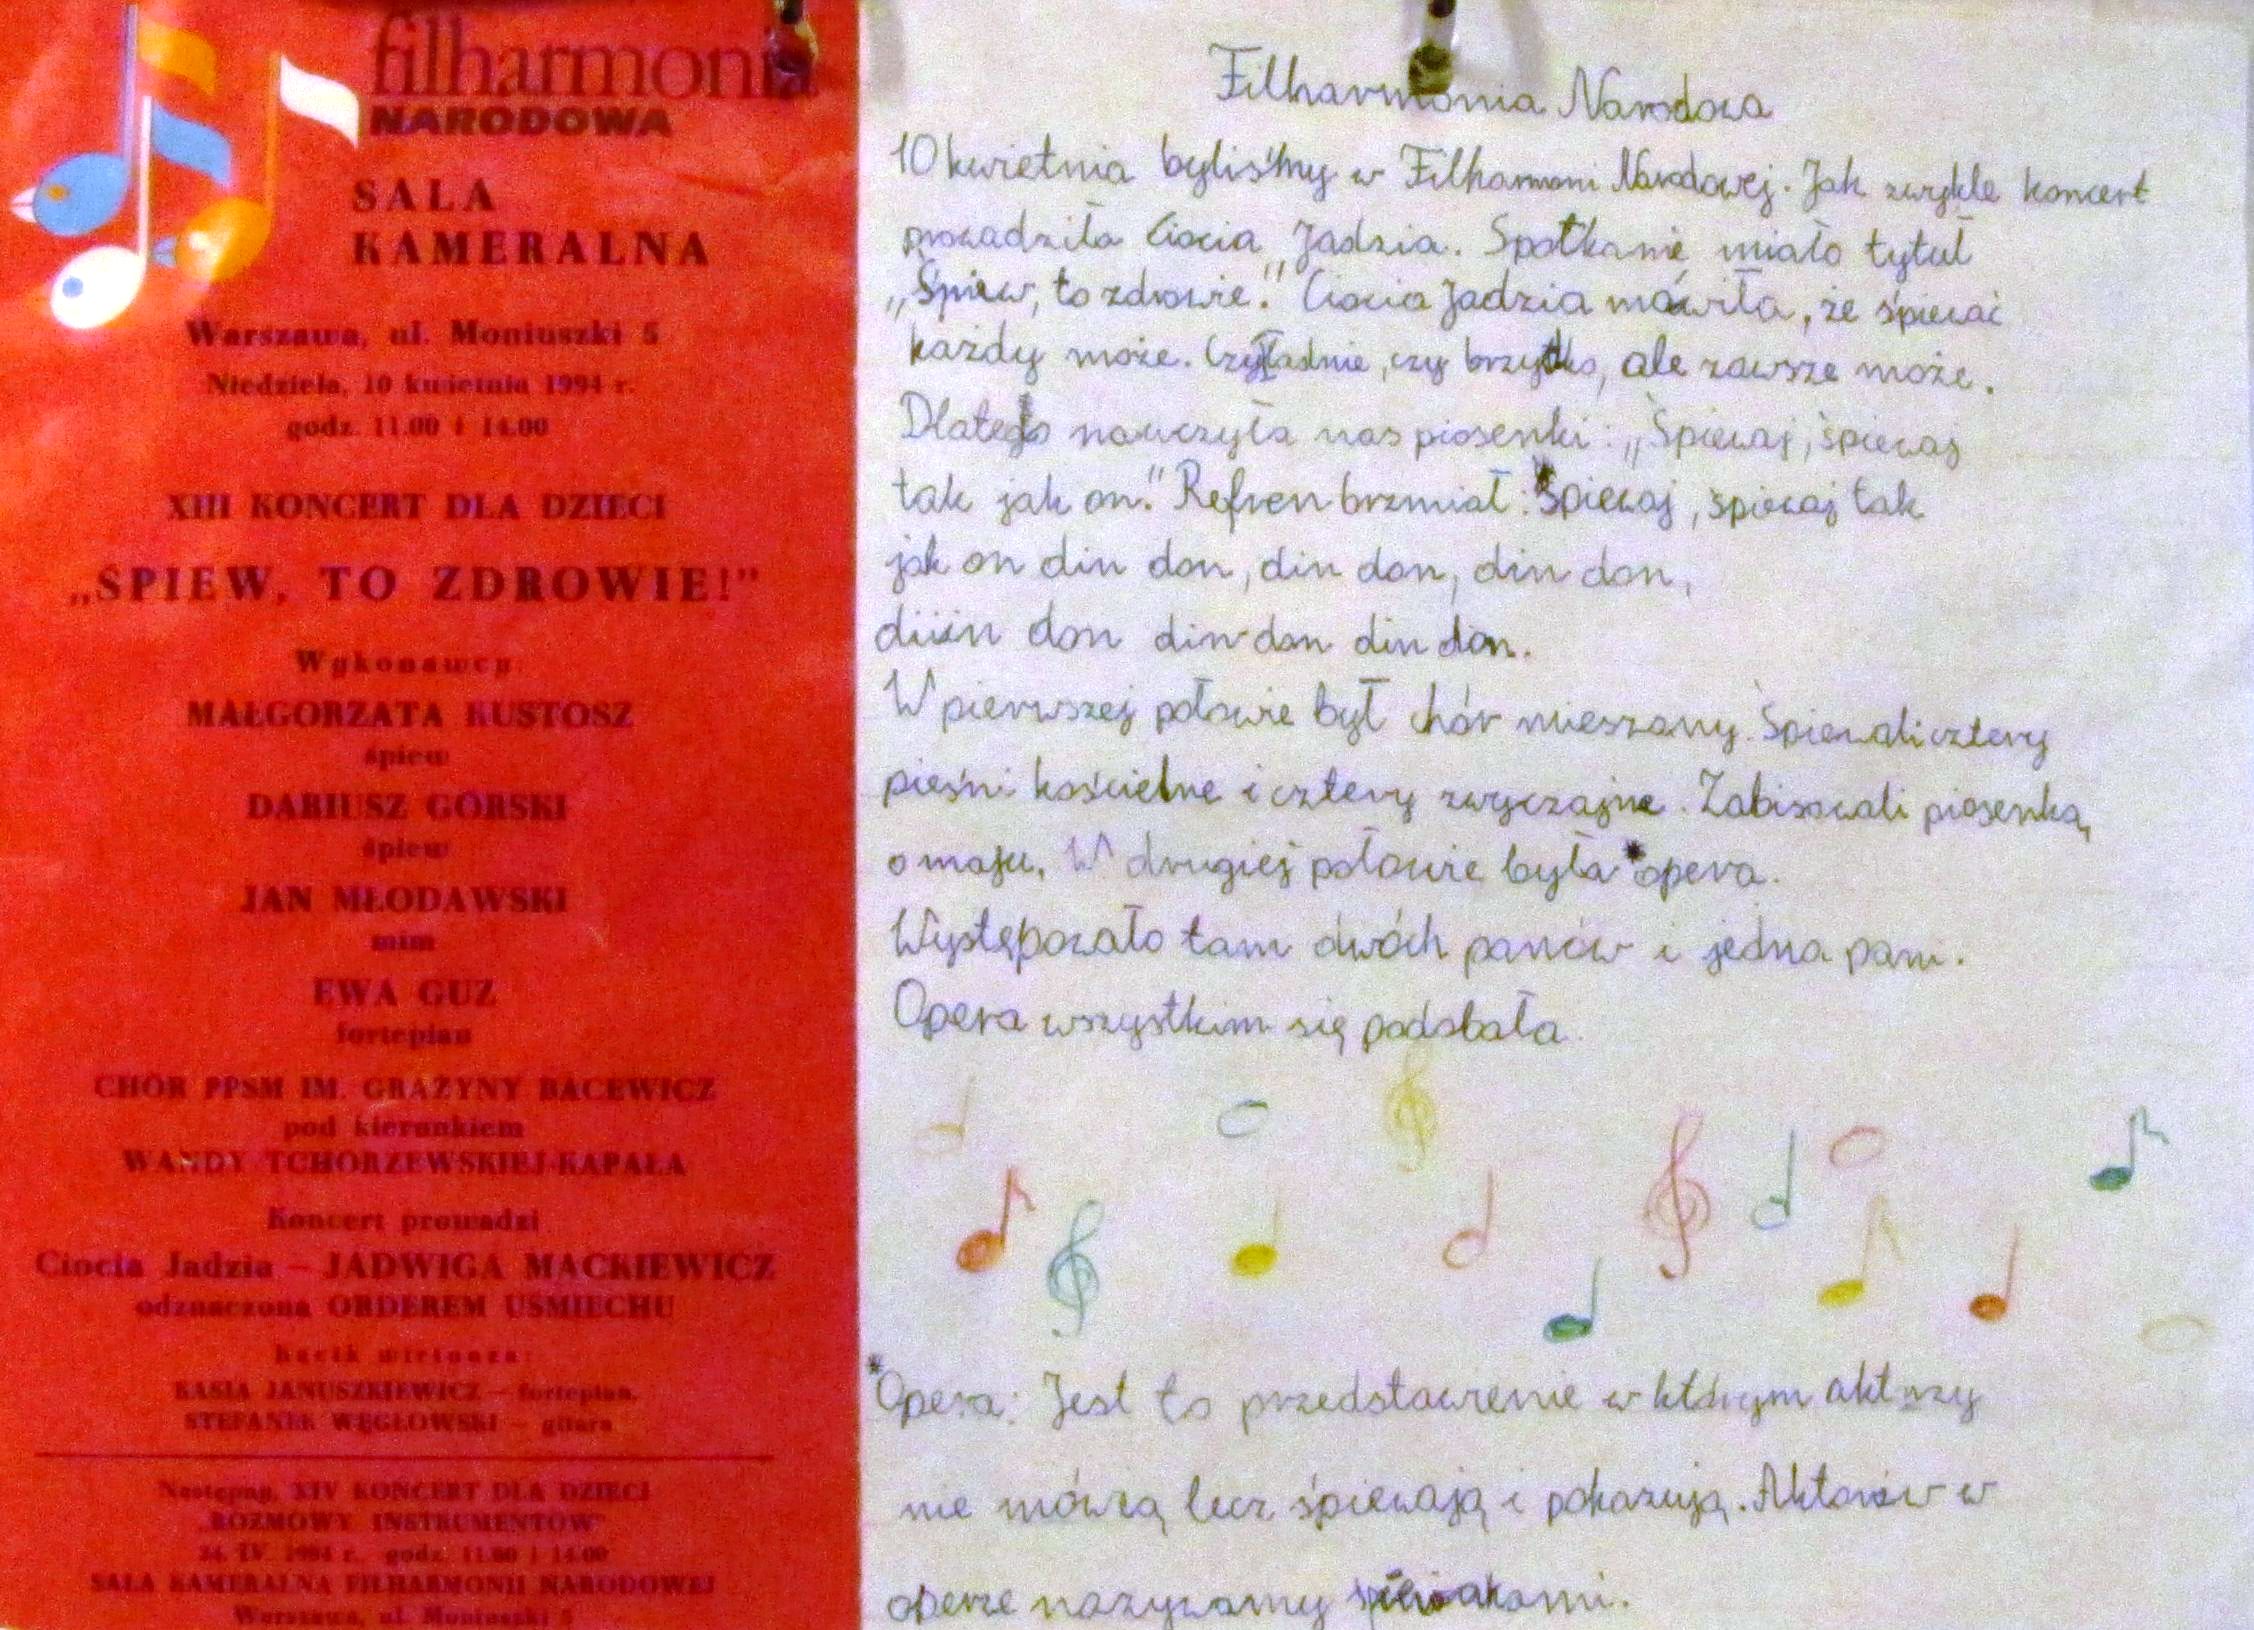 filharmonia
NARODOWA
SALA
KAMERALNA
Warszawa, ul. Moniuszki 5
Niedziela, 10 kwietnia 1994 r.
godz. 11.00 i 14.00
XIII KONCERT DLA DZIECI
„ŚPIEW, TO ZDROWIE!"
Wykonawcy:
MAŁGORZATA KUSTOSZ
śpiew
DARIUSZ GÓRSKI
śpiew
JAN MŁODAWSKI
mim
EWA GUZ
fortepian
CHÓR PPSM IM. GRAŻYNY BACEWICZ
pod kierunkiem
WANDY TCHÓRZEWSKIEJ-KAPAŁA
Koncert prowadzi
Ciocia Jadzia – JADWIGA MACKIEWICZ
odznaczona ORDEREM UŚMIECHU
Kącik wirtuoza:
KASIA JANUSZKIEWICZ – fortepian,
STEFANEK WĘGŁOWSKI – gitara
Następny, XIV KONCERT DLA DZIECI
„ROZMOWY INSTRUMENTÓW"
24. IV. 1994 r. godz. 11.00 i 14.00
SALA KAMERALNA FILHARMONII NARODOWEJ
Warszawa, ul. Moniuszki 5
Filharmonia Narodowa
10 kwietnia byliśmy w Filharmoni Narodowej. Jak zwykle koncert
prowadziła Ciocia Jadzia. Spotkanie miało tytuł
„Śpiew, to zdrowie." Ciocia Jadzia mówiła, że śpiewać
każdy może. Czy ładnie, czy brzydko, ale zawsze może.
Dlatego nauczyła nas piosenki: „Śpiewaj, śpiewaj
tak jak on." Refren brzmiał: Śpiewaj, śpiewaj tak
jak on din don, din don, din don,
diiin don din don din don.
W pierwszej połowie był chór mieszany. Śpiewali cztery
pieśni kościelne i cztery zwyczajne. Zabisowali piosenką
o maju. W drugiej połowie była *opera.
Występowało tam dwóch panów i jedna pani.
Opera wszystkim się podobała.
*Opera: Jest to przedstawienie w którym aktorzy
nie mówią lecz śpiewają i pokazują. Aktorów w
operze nazywamy śpiewakami.